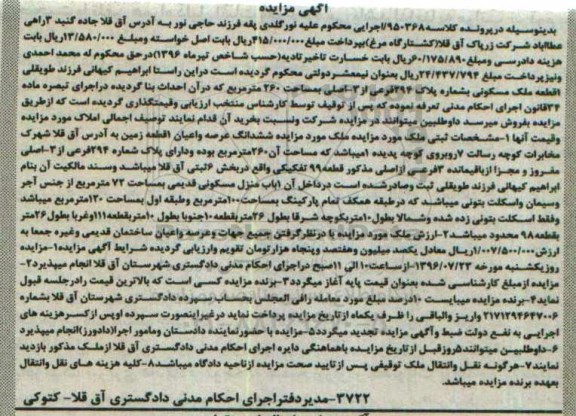 آگهی مزایده
بدینوسیله در پرونده کلاسه ۹۵۰۳۶۸/اجرایی محکوم علیه نورگلدی یقه فرزند حاجی نور به آدرس آق قلا جاده گنبد ۳راهی
عطاآباد شرکت زرپاک آق قلا(کشتارگاه مرغ)بپرداخت مبلغ ۴۱۵/۰۰۰/۰۰۰ریال بابت اصل خواسته ومبلغ ۱۳/۵۸۰/۰۰۰ریال بابت
هزینه دادرسی ومبلغ ۶۰/۱۷۵/۸۹۰ریال بابت خسارت تاخیرتادیه(حسب شاخص تیرماه ۱۳۹۶)درحق محکوم له محمد احمدی
ونیزپرداخت مبلغ ۲۴/۴۳۷/۷۹۴ریال بعنوان نیمعشردولتی محکوم گردیده است دراین راستا ابراهیم کیهانی فرزند طویقلی
۱قطعه ملک مسکونی بشماره پلاک ۲۹۴فرعی از۳-اصلی بمساحت ۲۶۰ مترمربع که درآن احداث بنا گردیده دراجرای تبصره ماده
۳۴قانون اجرای احکام مدنی تعرفه نموده که پس از توقیف توسط کارشناس منتخب ارزیابی وقیمتگذاری گردیده است که ازطریق
مزایده بفروش میرسد داوطلبین میتوانند در مزایده شرکت ونسبت بخرید آن قدام نمایند توصیف اجمالی املاک مورد مزایده
وقیمت آنها ۱-مشخصات ثبتی ملک مورد مزایده ملک مورد مزایده ششدانگ عرصه واعیان ۱قطعه زمین به آدرس آق قلا شهرک
مخابرات کوچه رسالت ۷روبروی کوچه پدیده ۱میباشد که مساحت آن۲۶۰مترمربع بوده ودارای پلاک شماره ۲۹۴فرعی از۳-اصلی
مفروز و مجزا ازباقیمانده ۳فرعی ازاصلی مذکور قطعه ۹۹ تفکیکی واقع دربخش ۶ثبتی آق قلا میباشد وسند مالکیت آن بنام
ابراهیم کیهانی فرزند طویقلی ثبت وصادرشده است درداخل آن ۱باب منزل مسکونی قدیمی بمساحت ۷۲ مترمربع از جنس آجر
وسیمان واسکلت بتونی میباشد که درطبقه همکف تمام پارکینگ بمساحت۱۰۰مترمربع وطبقه اول بمساحت ۱۳۰مترمربع میباشد
وفقط اسکلت بتونی زده شده وشمالا بطول ۱۰متربکوچه شرقا بطول ۲۶متربقطعه۱۰جنوبا بطول ۱۰متربقطعه۱۱۱وغربا بطول ۲۶متر
بقطعه ۹۸ محدود میباشد۲-ارزش ملک مورد مزایده با درنظرگرفتن جمیع جهات وعرصه واعیان ساختمان قدیمی وغیره جمعا به
ارزش ۱/۰۰۷/۵۰۰/۰۰۰ریال معادل یکصد میلیون وهفتصد وپنجاه هزارتومان تقویم وارزیابی گردیده شرایط آگهی مزایده۱-مزایده
روزیکشنبه مورخه ۱۳۹۶/۰۷/۲۳-ازساعت۱۰الی ۱۱صبح دراجرای احکام مدنی دادگستری شهرستان آق قلا انجام میپذیرد۲-
مزایده ازمبلغ کارشناسی شده بعنوان قیمت پایه آغاز میگردد۳-برنده مزایده کسی است که بالاترین قیمت رادرجلسه قبول
نماید۴-برنده مزایده میبایست ۱۰درصد مبلغ مورد معامله رافی المجلس بحساب سپرده دادگستری شهرستان آق قلا بشماره
۲۱۷۱۲۹۴۶۴۷۰۰۶ واریز والباقی را ظرف یکماه ازتاریخ مزایده پرداخت نماید درغیراینصورت سپرده اوپس ازکسرهزینه های
اجرایی به نفع دولت ضبط وآگهی مزایده تجدید میگردد۵-مزایده با حضورنماینده دادستان ومامور اجرا(دادورز)انجام میپذیرد
۶-داوطلبین میتوانند۵روزقبل از تاریخ مزایده باهماهنگی دایره اجرای احکام مدنی دادگستری آق قلا ازملک مذکور بازدید
نمایند۷-هرگونه نقل وانتقال ملک توقیفی پس از تایید صحت مزایده ازناحیه دادگاه میباشد۸-کلیه هزینه های نقل وانتقال
بعهده برنده مزایده میباشد.
۳۷۲۲-مدیردفتراجرای احکام مدنی دادگستری آق قلا- کتوکی